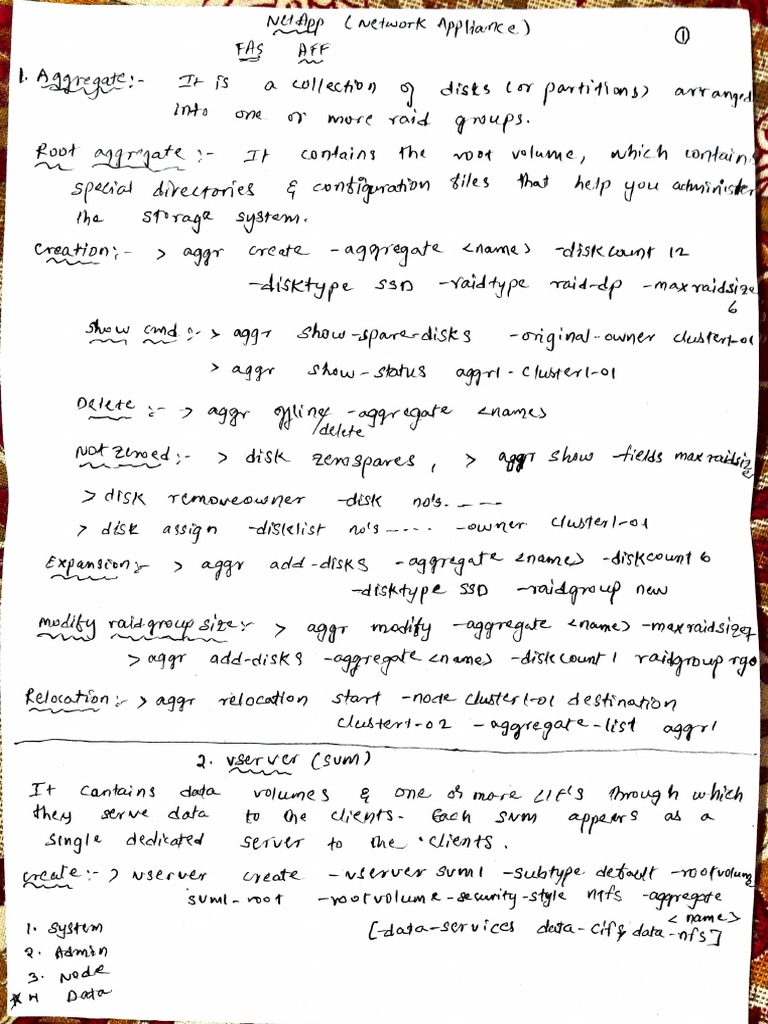 NetApp (Network Appliance)
①
FAS AFF
1. Aggregate:- It is a collection of disks (or partitions) arranged
into one or more raid groups.
Root aggregate:- It contains the root volume, which contains
special directories & configuration files that help you administer
the storage system.
Creation:- > aggr create -aggregate <name> -diskcount 12
-disktype SSD -raidtype raid-dp -maxraidsize
6
Show cmd:- > aggr show-spare-disks -original-owner cluster1-01
> aggr show-status aggr1-cluster1-01
Delete:- > aggr offline -aggregate <name>
/delete
Not zeroed:- > disk zerospares, > aggr show -fields maxraidsize
> disk removeowner -disk no's.----
> disk assign -disklist no's---.. -owner cluster1-01
Expansion:- > aggr add-disks -aggregate <name> -diskcount 6
-disktype SSD -raidgroup new
Modify raidgroup size:- > aggr modify -aggregate <name> -maxraidsize 7
> aggr add-disks -aggregate <name> -diskcount 1 raidgroup rg0
Relocation:- > aggr relocation start -node cluster1-01 destination
cluster1-02 -aggregate-list aggr1
2. vserver (svm)
It contains data volumes & one or more LIF's through which
they serve data to the clients. Each svm appears as a
single dedicated server to the clients.
Create:- > vserver create -vserver svm1 -subtype default -rootvolume
svm1-root -rootvolume-security-style ntfs -aggregate
<name>
[-data-services data-cifs, data-nfs]
1. System
2. Admin
3. Node
* 4 Data